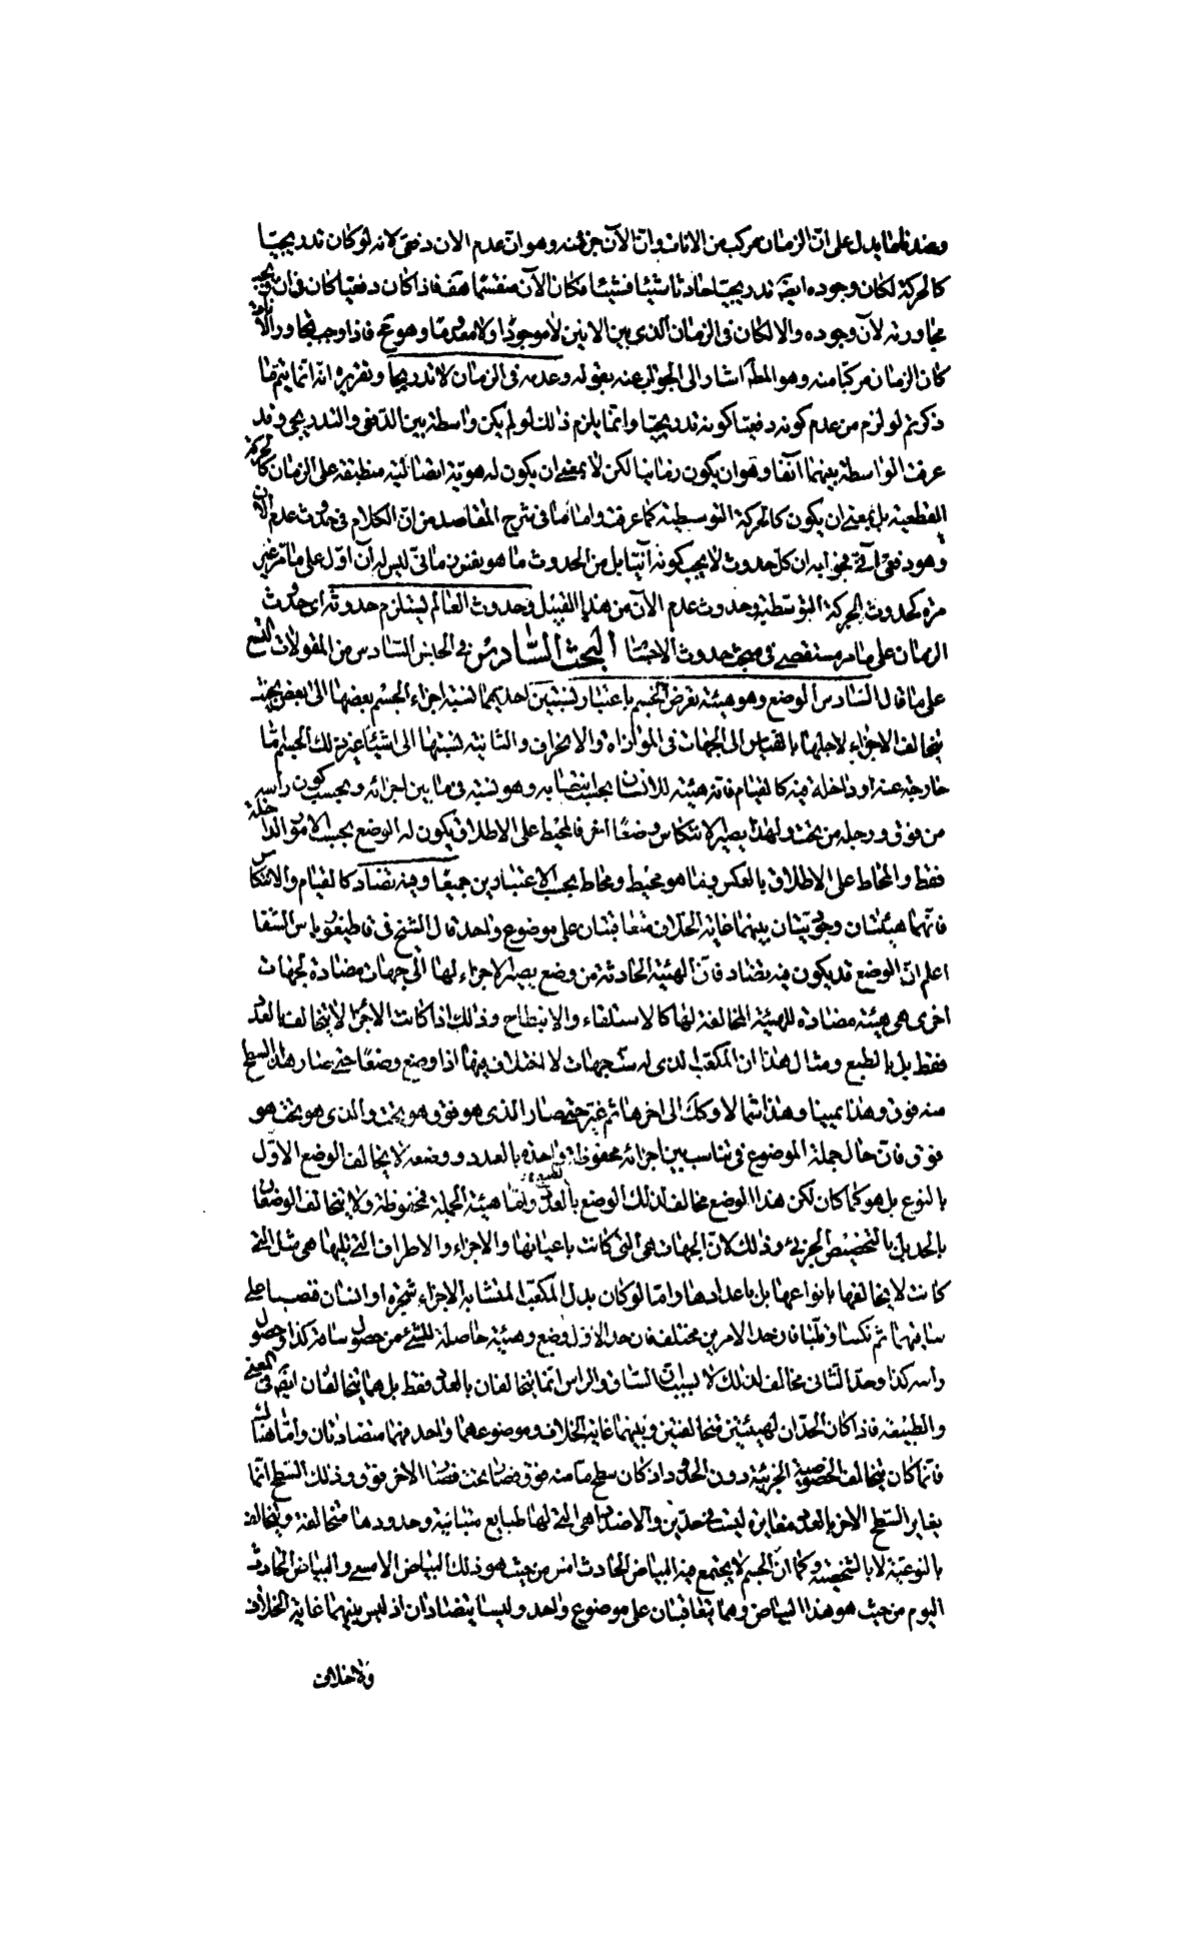 وضد فلما يدل على ان الزمان مركب من الانات وان الآن جزئه وهو ان عدم الان دفعى لانه لو كان تدريجيا
كالحركة لكان وجوده ايضا تدريجيا حادثا شيئا فشيئا فكان الآن منقسما هف فاذا كان دفعيا كان فى ان
مجاورته لآن وجوده والا لكان فى الزمان الذى بين الانين لا موجودا ولا معدوما وهو مح فاذا وجب تجاور الآنات
كان الزمان مركبا منه وهو المط اشار الى الجواب عنه بقوله وعدمه فى الزمان لا تدريجا وتقريره انه انما يتم ما
ذكرتم لو لزم من عدم كونه دفعيا كونه تدريجيا وانما يلزم ذلك لو لم يكن واسطة بين الدفعى والتدريجى وقد
عرفت الواسطة بينهما آنفا وهو ان يكون زمانيا لكن لا بمعنى ان يكون له هوية اتصالية منطبقة على الزمان كالحركة
القطعية بل بمعنى ان يكون كالحركة التوسطية كما عرفت واما ما فى شرح المقاصد من ان الكلام فى حدوث عدم الان
وهو دفعى آنى فجوابه ان كل حدوث لا يجب كونه آنيا بل من الحدوث ما هو بفنون مانى ليس له آن اول على ما مر غير
مرة كحدوث الحركة التوسطية وحدوث عدم الآن من هذا القبيل وحدوث العالم يستلزم حدوثه اى حدوث
الزمان على ما مر مستقصى فى مبحث حدوث الاجسام البحث السادس فى الجنس السادس من المقولات التسع
على ما قال السادس الوضع وهو هيئة تعرض للجسم باعتبار نسبتين احديهما نسبة اجزاء الجسم بعضها الى بعض بحيث
يتخالف الاجزاء لاجلها بالقياس الى الجهات فى الموازاة والانحراف والثانية نسبتها الى اشياء غير ذلك الجسم اما
خارجة عنه او داخلة فيه كالقيام فانه هيئة للانسان بحسب انتصابه وهو نسبة فى ما بين اجزائه وبحسب كون راسه
من فوق ورجله من تحت ولهذا يصير الانتكاس وضعا اخر فالمحيط على الاطلاق يكون له الوضع بحسب الامور الداخلة
فقط والمحاط على الاطلاق بالعكس وفيما هو محيط ومحاط بحسب الاعتبارين جميعا وفيه تضاد كالقيام والانتكاس
فانهما هيئتان وجوديتان بينهما غاية الخلاف متعاقبتان على موضوع واحد قال الشيخ فى قاطيغورياس الشفا
اعلم ان الوضع قد يكون فيه تضاد فان الهيئة الحادثة من وضع يصير الاجزاء لها الى جهات مضادة لجهات
اخرى هى هيئة مضادة للهيئة المخالفة لها كالاستلقاء والانبطاح وذلك اذا كانت الاجزاء لا تتخالف بالعدد
فقط بل بالطبع ومثال هذا ان المكعب الذى له ست جهات لا اختلاف فيها اذا وضع وضعا حتى صار هذا السطح
منه فوق وهذا يمينا وهذا شمالا وكك الى اخرها ثم غير حتى صار الذى هو فوق هو تحت والذى هو تحت هو
فوق فان حال جملة الموضوع فى تناسب بين اجزائه محفوظة واحدة بالعدد ووضعه لا يخالف الوضع الاول
بالنوع بل هو كما كان لكن هذا الوضع مخالف لذلك الوضع بالعدد وبقاء هيئة الجملة محفوظة ولا يتخالف الوضعان
بالحد بل بالتخصيص الجزئى وذلك لان الجهات هى التى كانت باعيانها والاجزاء والاطراف التى تليها هى مثل التى
كانت لا يخالفها بانواعها بل باعدادها واما لو كان بدل المكعب المتشابه الاجزاء شجرة او انسان فنصبا على
ساقيهما ثم نكسا وقلبا فان حد الامرين مختلف فان حد الاول وضع وهيئة حاصلة للشئ من حصول ساقه كذا وحصول
راسه كذا وحد الثانى مخالف لذلك لا لسبب ان الساق والراس انما يتخالفان بالعدد فقط بل هما يتخالفان ايضا فى المعنى
والطبيعة فاذا كان الحدان لهيئتين متخالفتين وبينهما غاية الخلاف وموضوعهما واحد فهما متضادتان واما هناك
فانما كان يتخالف الخصوصية الجزئية دون الحدود اذ كان سطح ما منه فوق فصار تحت فصار الاخر فوق وذلك السطح انما
يغاير السطح الاخر بالعدد مغايرة ليست فى حدين والاضداد هى التى لها طبايع متباينة وحدودها متخالفة ويتخالف
بالنوعية لا بالشخصية وكما ان الجسم لا يجتمع فيه البياض الحادث امس من حيث هو ذلك البياض الامسى والبياض الحادث
اليوم من حيث هو هذا البياض وهما يتعاقبان على موضوع واحد وليسا يتضادان اذ ليس بينهما غاية الخلاف
ولا خلاف